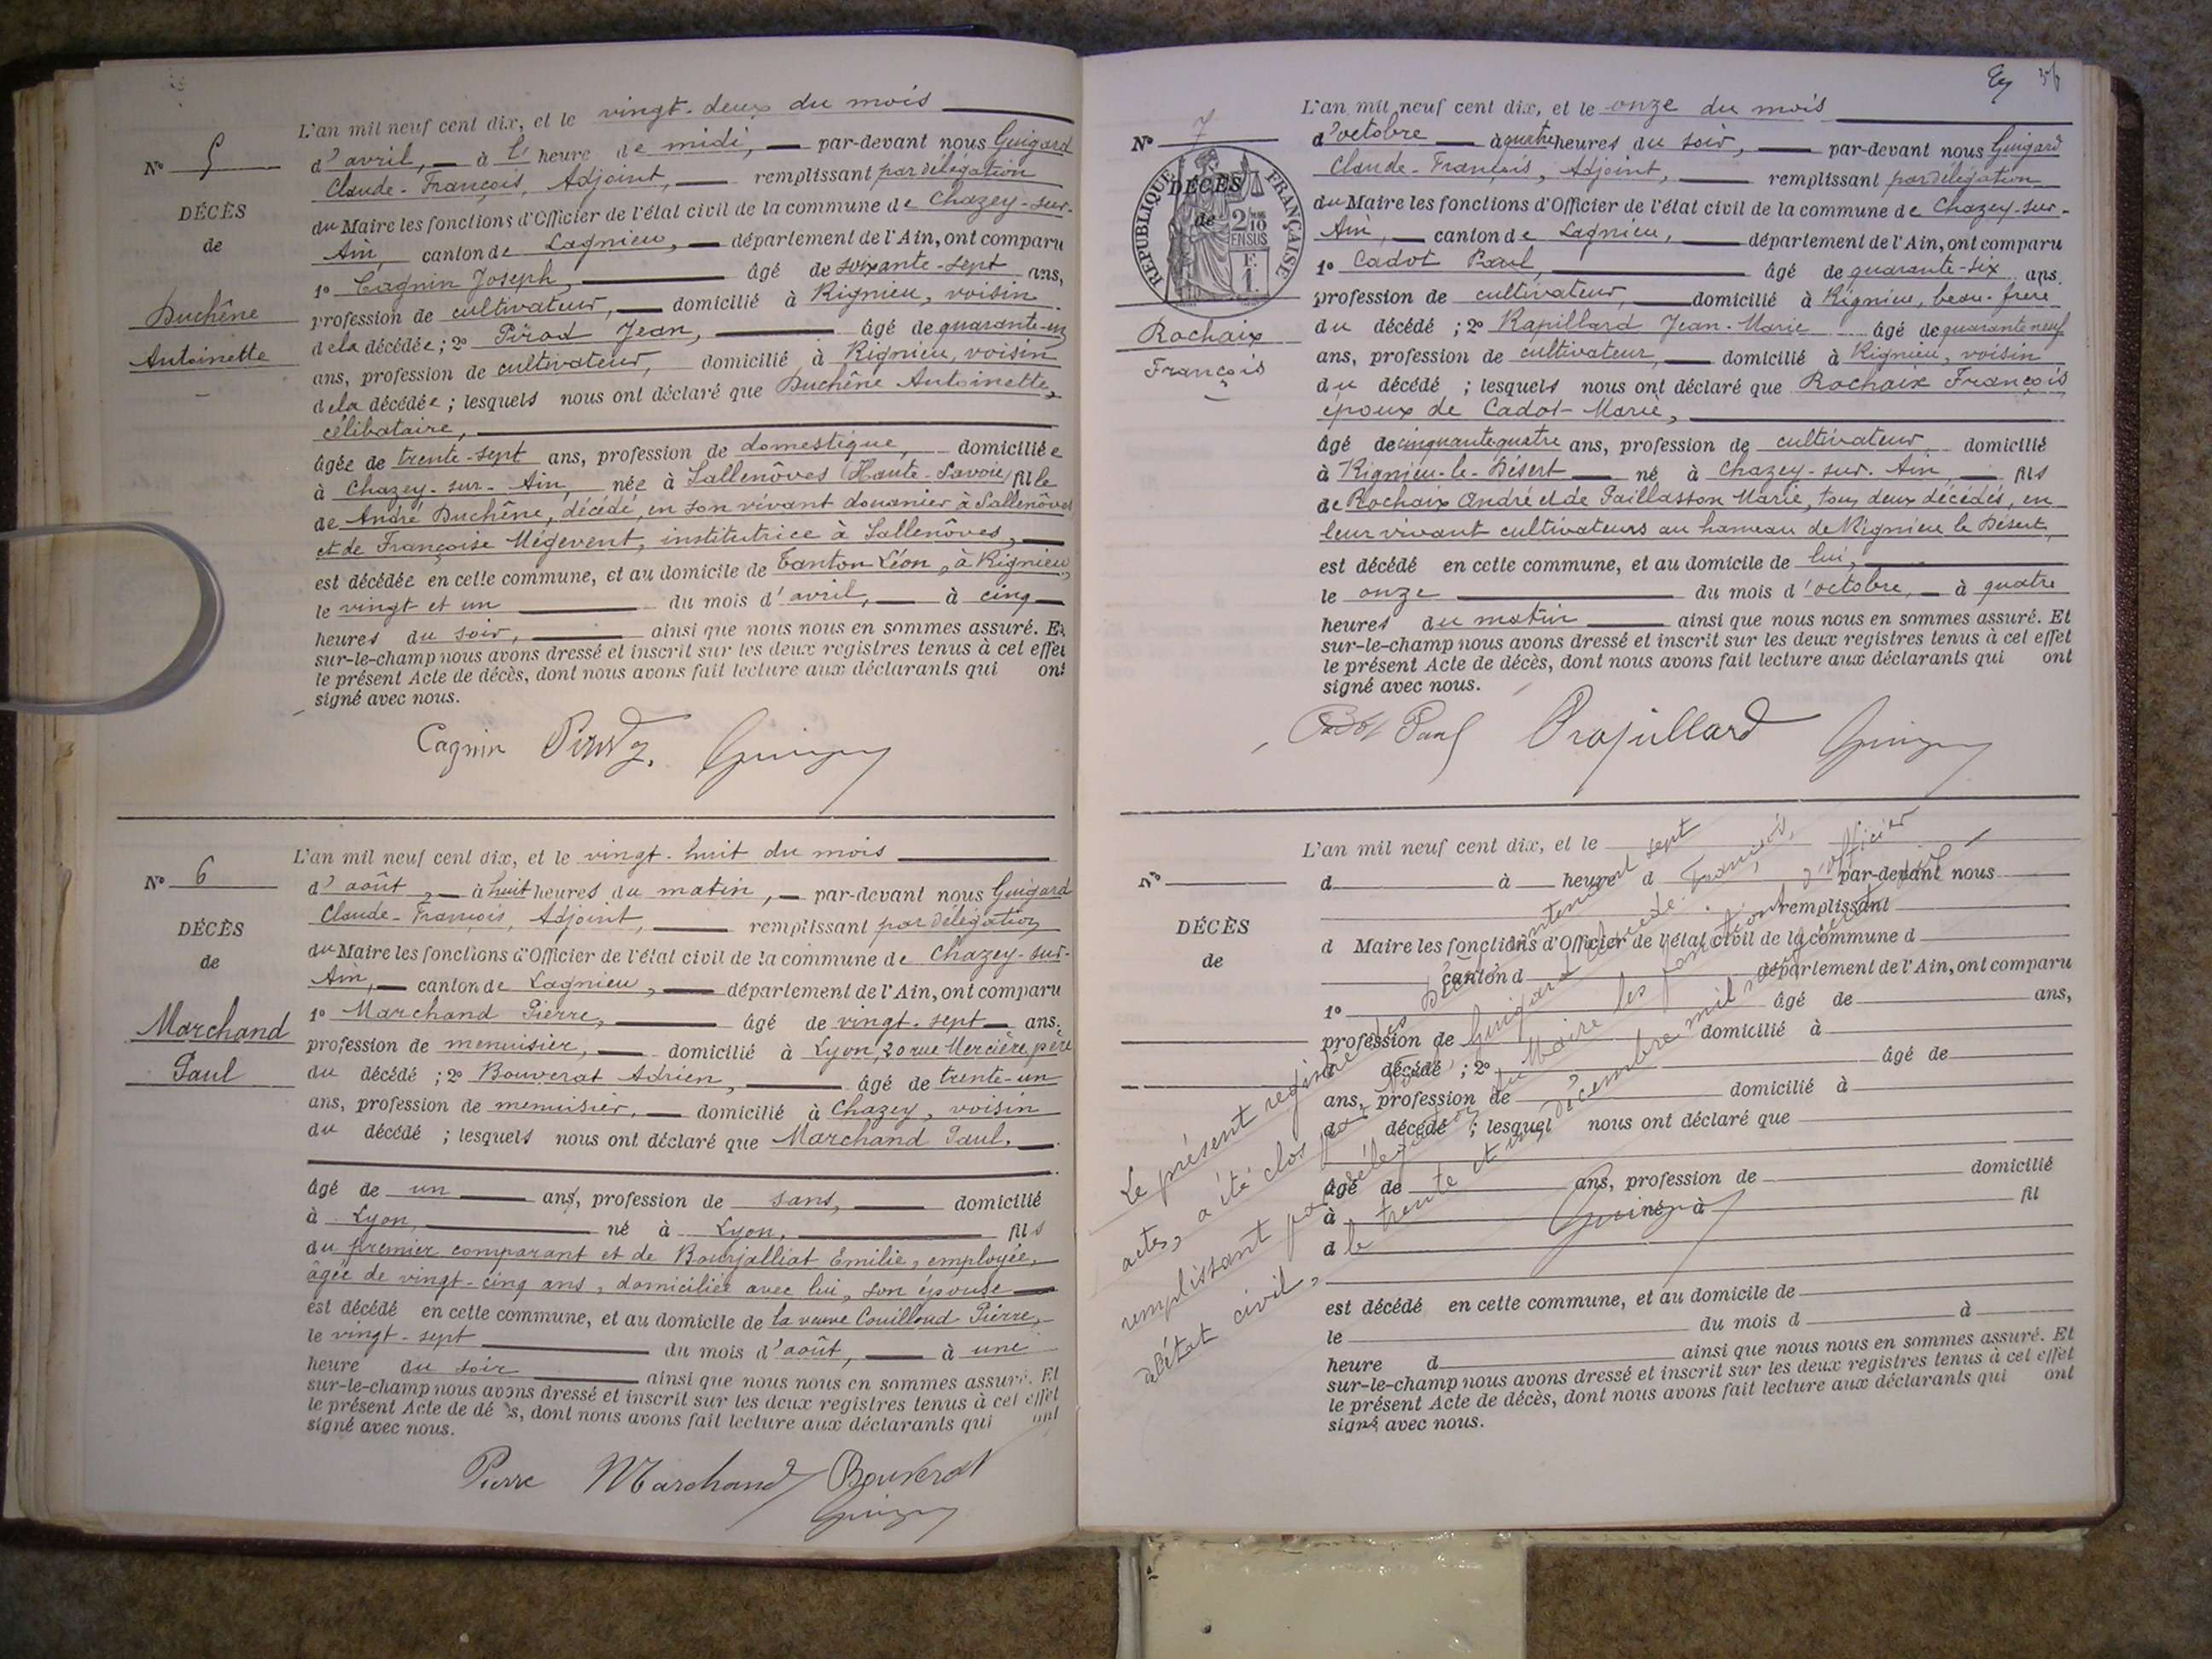 L'an mil neuf cent dix, et le vingt-deux du mois
d'avril, à l'heure de midi, par-devant nous Guigard
Claude-François, Adjoint, remplissant par délégation
du Maire les fonctions d'Officier de l'état civil de la commune de Chazey-sur-
Ain, canton de Lagnieu, département de l'Ain, ont comparu
1º Cagnin Joseph, âgé de soixante-sept ans,
profession de cultivateur, domicilié à Rignieu, voisin
de la décédée; 2º Pérod Jean, âgé de quarante-un
ans, profession de cultivateur, domicilié à Rignieu, voisin
de la décédée; lesquels nous ont déclaré que Duchêne Antoinette,
célibataire,
âgée de trente-sept ans, profession de domestique, domiciliée
à Chazey-sur-Ain, née à Sallenôves (Haute-Savoie) fille
de André Duchêne, décédé, en son vivant douanier à Sallenôves
et de Françoise Mégevent, institutrice à Sallenôves,
est décédée en cette commune, et au domicile de Tanton Léon, à Rignieu,
le vingt et un du mois d'avril, à cinq
heures du soir, ainsi que nous nous en sommes assuré. Et
sur-le-champ nous avons dressé et inscrit sur les deux registres tenus à cet effet
le présent Acte de décès, dont nous avons fait lecture aux déclarants qui ont
signé avec nous.
Nº 5
DÉCÈS
de
Duchêne
Antoinette
Cagnin
L'an mil neuf cent dix, et le vingt-huit du mois
d'août, à huit heures du matin, par-devant nous Guigard
Claude-François, Adjoint, remplissant par délégation
du Maire les fonctions d'Officier de l'état civil de la commune de Chazey-sur-
Ain, canton de Lagnieu, département de l'Ain, ont comparu
1º Marchand Pierre, âgé de vingt-sept ans,
profession de menuisier, domicilié à Lyon, 20 rue Mercière, père
du décédé; 2º Bouverat Adrien, âgé de trente-un
ans, profession de menuisier, domicilié à Chazey, voisin
du décédé; lesquels nous ont déclaré que Marchand Paul,
âgé de un ans, profession de sans, domicilié
à Lyon, né à Lyon, fils
du premier comparant et de Bourjalliat Emilie, employée,
âgée de vingt-cinq ans, domiciliée avec lui, son épouse
est décédé en cette commune, et au domicile de la veuve Couilloud Pierre,
le vingt-sept du mois d'août, à une
heure du soir ainsi que nous nous en sommes assuré. Et
sur-le-champ nous avons dressé et inscrit sur les deux registres tenus à cet effet
le présent Acte de décès, dont nous avons fait lecture aux déclarants qui ont
signé avec nous.
Nº 6
DÉCÈS
de
Marchand
Paul
Pierre Marchand Bouverat
56
L'an mil neuf cent dix, et le onze du mois
d'octobre à quatre heures du soir, par-devant nous Guigard
Claude-François, Adjoint, remplissant par délégation
du Maire les fonctions d'Officier de l'état civil de la commune de Chazey-sur-
Ain, canton de Lagnieu, département de l'Ain, ont comparu
1º Cadot Paul, âgé de quarante-six ans,
profession de cultivateur, domicilié à Rignieu, beau-frère
du décédé; 2º Rapillard Jean-Marie âgé de quarante neuf
ans, profession de cultivateur, domicilié à Rignieu, voisin
du décédé; lesquels nous ont déclaré que Rochaix François
époux de Cadot Marie,
âgé de cinquante quatre ans, profession de cultivateur, domicilié
à Rignieu-le-Désert né à Chazey-sur-Ain, fils
de Rochaix André et de Paillasson Marie, tous deux décédés, en
leur vivant cultivateurs au hameau de Rignieu le Désert,
est décédé en cette commune, et au domicile de lui,
le onze du mois d'octobre, à quatre
heures du matin ainsi que nous nous en sommes assuré. Et
sur-le-champ nous avons dressé et inscrit sur les deux registres tenus à cet effet
le présent Acte de décès, dont nous avons fait lecture aux déclarants qui ont
signé avec nous.
Nº 7
RÉPUBLIQUE FRANÇAISE
2/10
EN SUS
F.
1.
DÉCÈS
de
Rochaix
François
Cadot Paul Rapillard
L'an mil neuf cent dix, et le
d à heure d par-devant nous
remplissant
d Maire les fonctions d'Officier de l'état civil de la commune d
canton d département de l'Ain, ont comparu
1º âgé de ans,
profession de domicilié à
d décédé; 2º âgé de
ans, profession de domicilié à
d décédé; lesquel nous ont déclaré que
âgé de ans, profession de domicilié
à né à fil
d
est décédé en cette commune, et au domicile de
le du mois d à
heure d ainsi que nous nous en sommes assuré. Et
sur-le-champ nous avons dressé et inscrit sur les deux registres tenus à cet effet
le présent Acte de décès, dont nous avons fait lecture aux déclarants qui ont
signé avec nous.
Nº
DÉCÈS
de
Le présent registre des Décès contenant sept
actes, a été clos par Nous, Guigard Claude-François,
remplissant par délégation du Maire les fonctions d'officier
de l'état civil, le trente et un décembre mil neuf cent dix